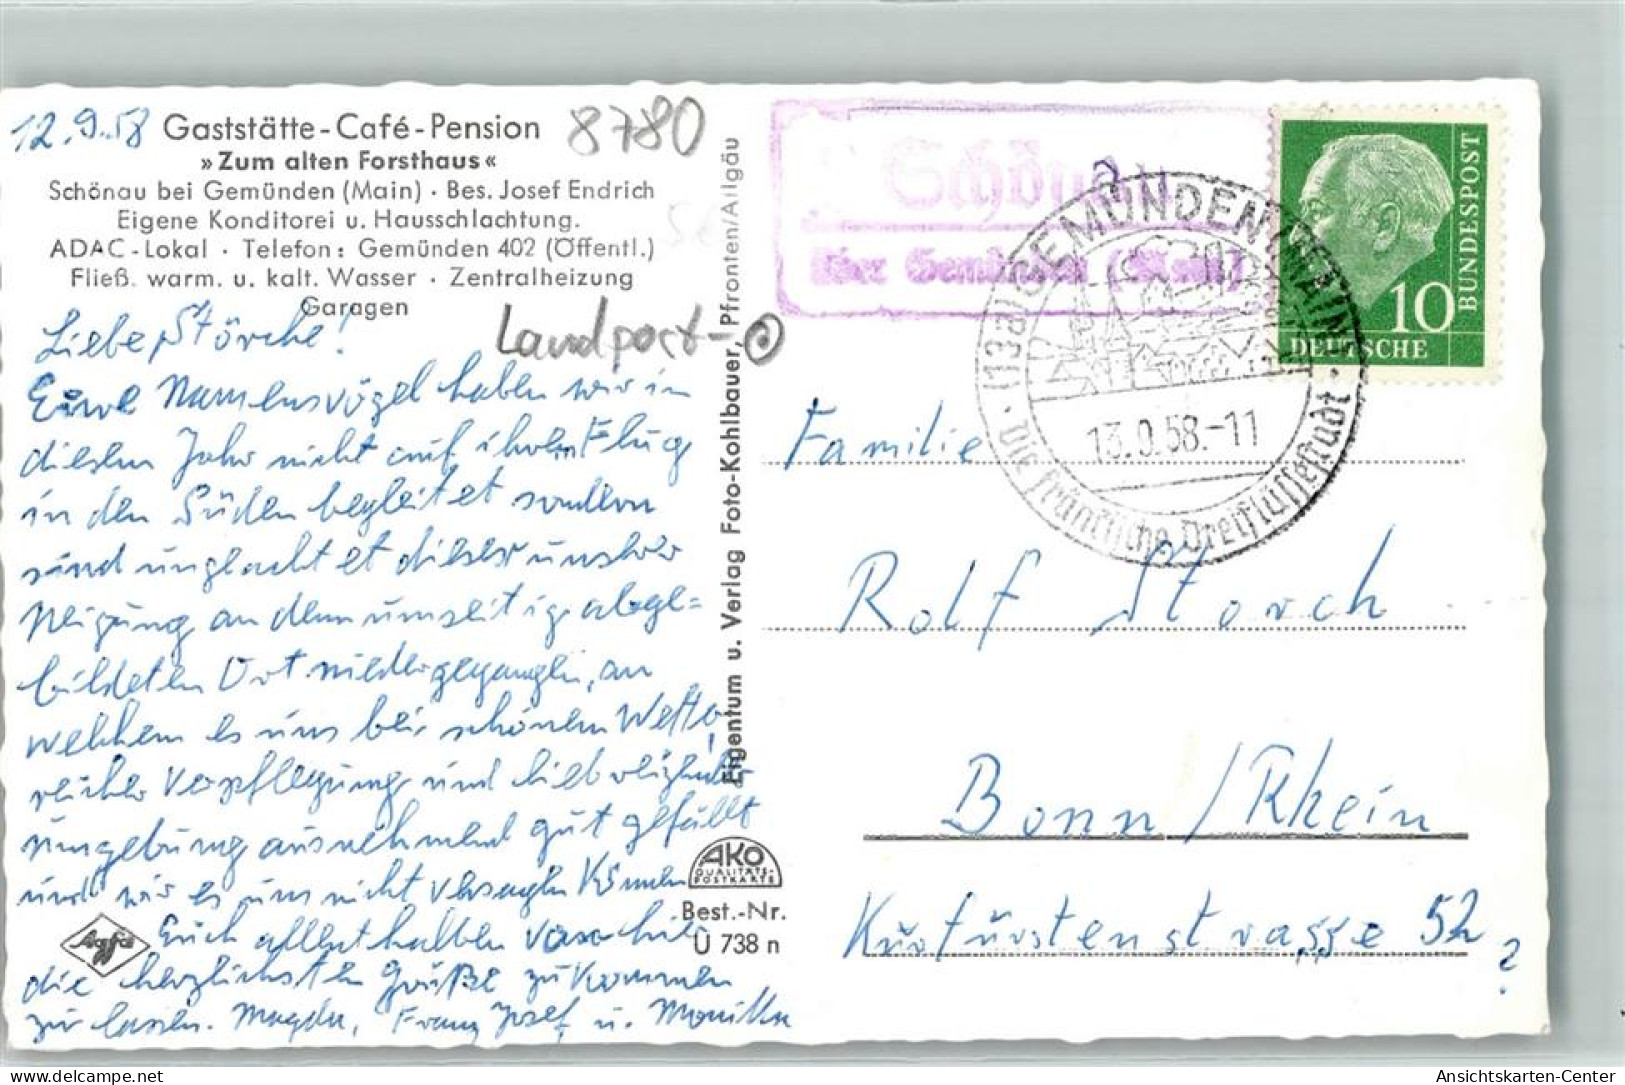 12.9.58
Gaststätte - Café - Pension
»Zum alten Forsthaus«
Schönau bei Gemünden (Main) · Bes. Josef Endrich
Eigene Konditorei u. Hausschlachtung.
ADAC - Lokal · Telefon: Gemünden 402 (Öffentl.)
Fließ. warm. u. kalt. Wasser · Zentralheizung
Garagen
8780
Landpost-
Liebe Störche!
Eure Namensvögel haben wir in
diesem Jahr nicht auf ihrem Flug
in den Süden begleitet sondern
sind ungeachtet dieser unserer
Neigung an dem umseitig abge=
bildeten Ort niedergegangen, an
welchem es uns bei schönem Wetter,
reicher Verpflegung und lieblicher
Umgebung ausnehmend gut gefällt
und wir es uns nicht versagen können
Euch allenthalben von hier
die herzlichsten Grüße zukommen
zu lassen. Magda, Franz Josef u. Monika
Eigentum u. Verlag Foto-Kohlbauer, Pfronten/Allgäu
AKO
QUALITÄTS-
POSTKARTE
Best.-Nr.
U 738 n
Agfa
Schönau
über Gemünden (Main)
(13a) GEMÜNDEN (MAIN)
13.9.58.-11
Die fränkische Dreiflüssestadt
BUNDESPOST
10
DEUTSCHE
Familie
Rolf Storch
Bonn/Rhein
Kurfürstenstrasse 52
?
www.ansichtskarten-center.de
Ansichtskarten-Center